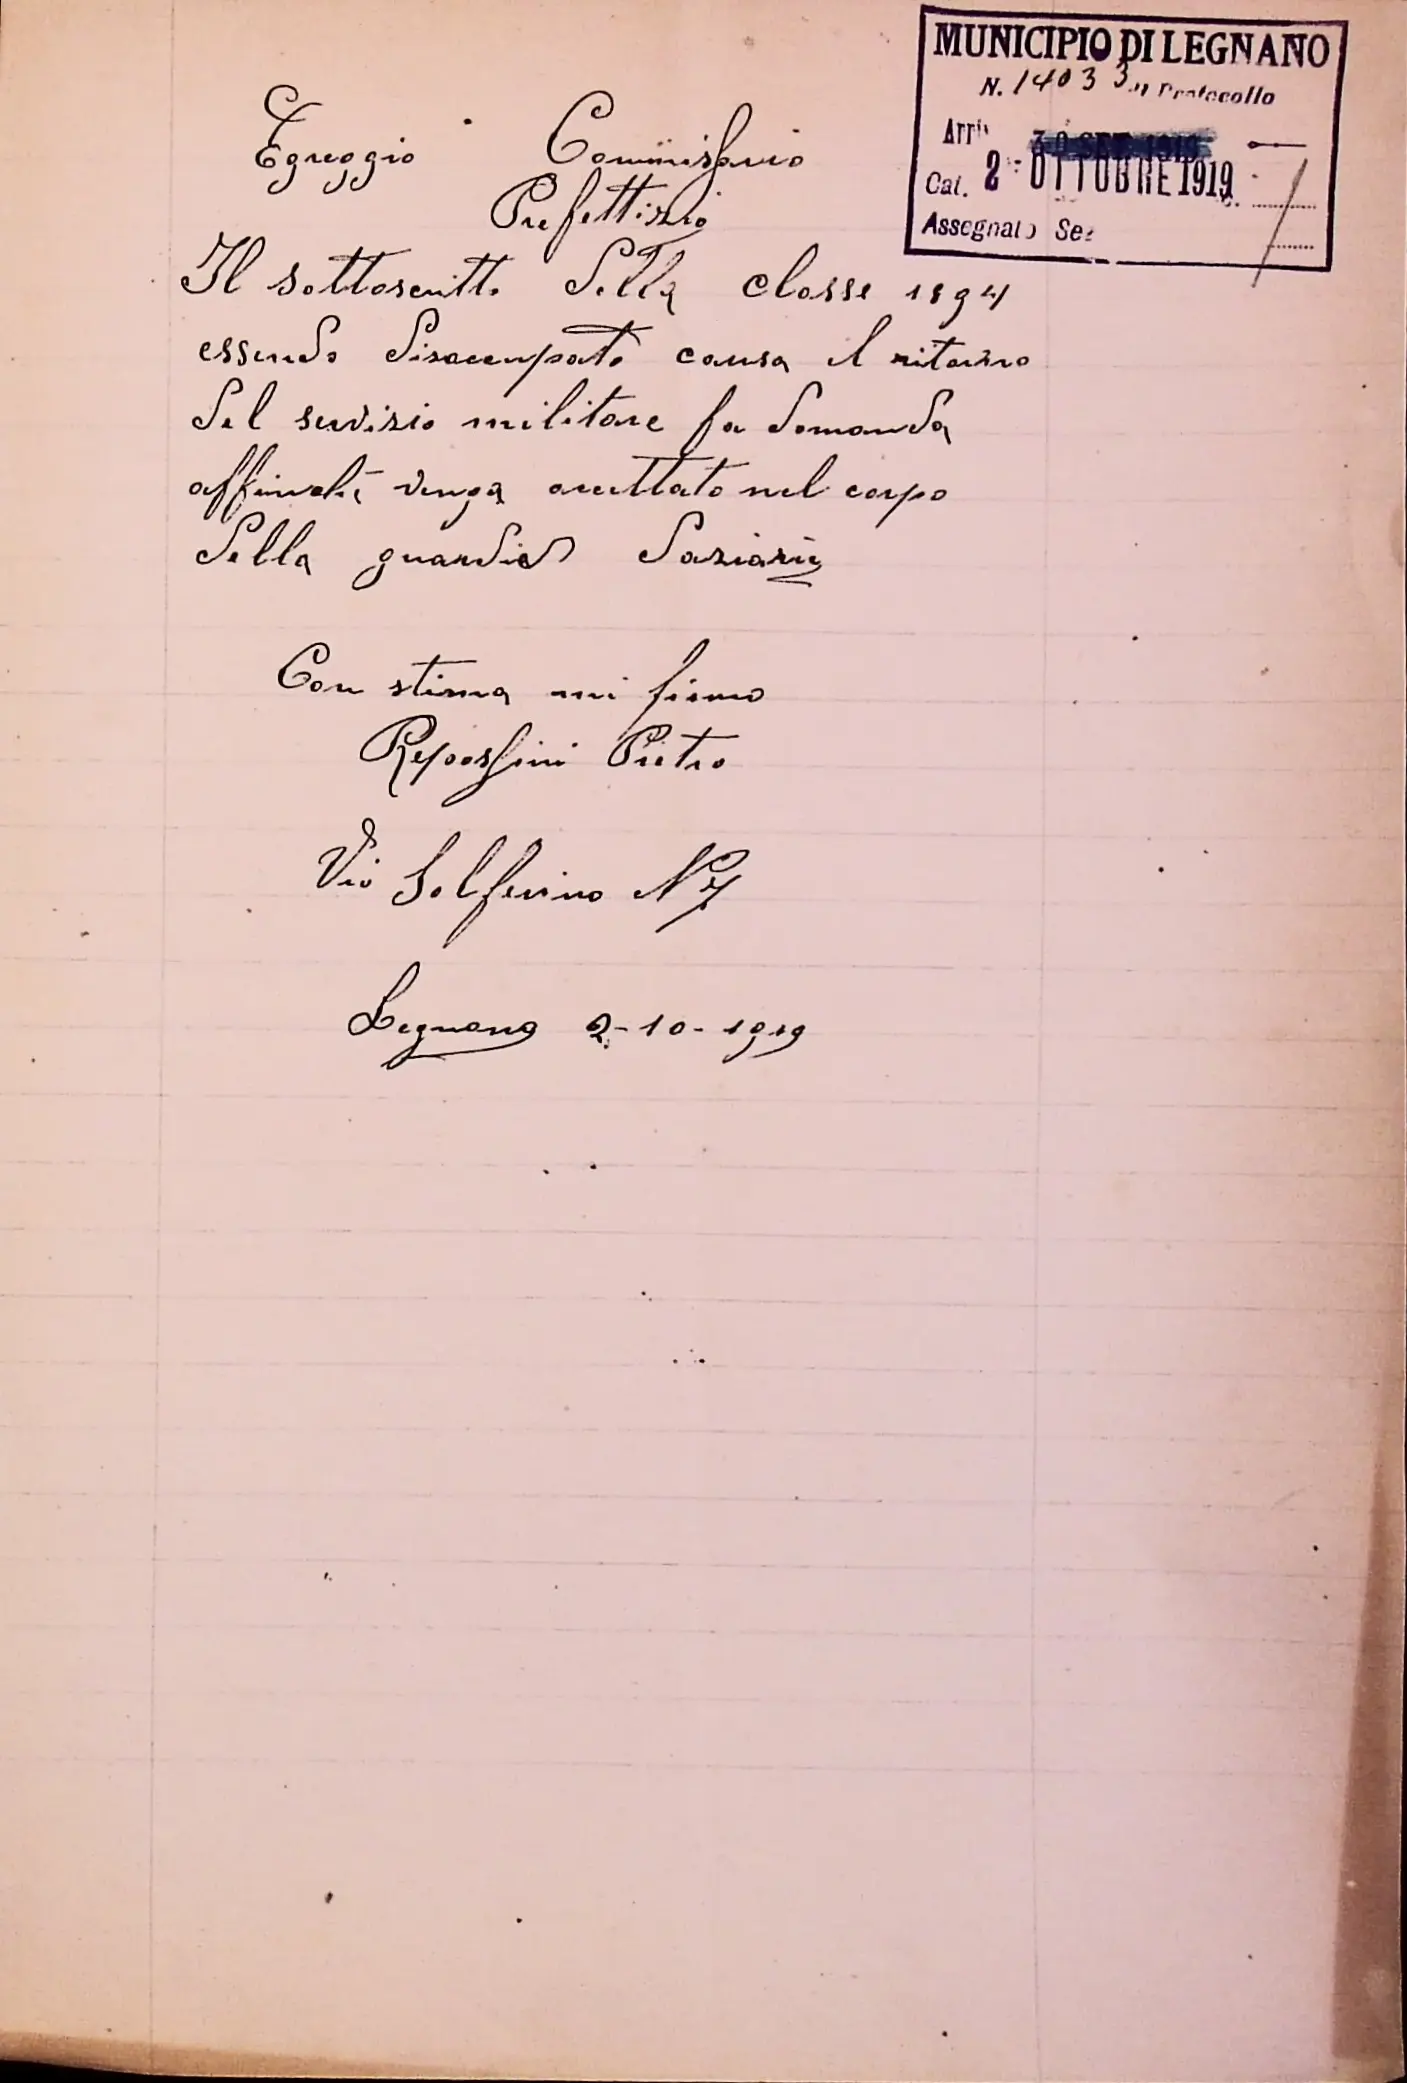 MUNICIPIO DI LEGNANO
N. 14033 di Protocollo
Arri
30 SET 1919
Cat. 2 - OTTOBRE 1919
Assegnato Sez
Egreggio Commissario
Prefettizio
Il sottoscritto della classe 1894
essendo disoccupato causa il ritorno
del servizio militare fa domanda
affinchè venga accettato nel corpo
della guardie daziarie
Con stima mi firmo
Repossini Pietro
Via Solferino N 7
Legnano 2-10-1919